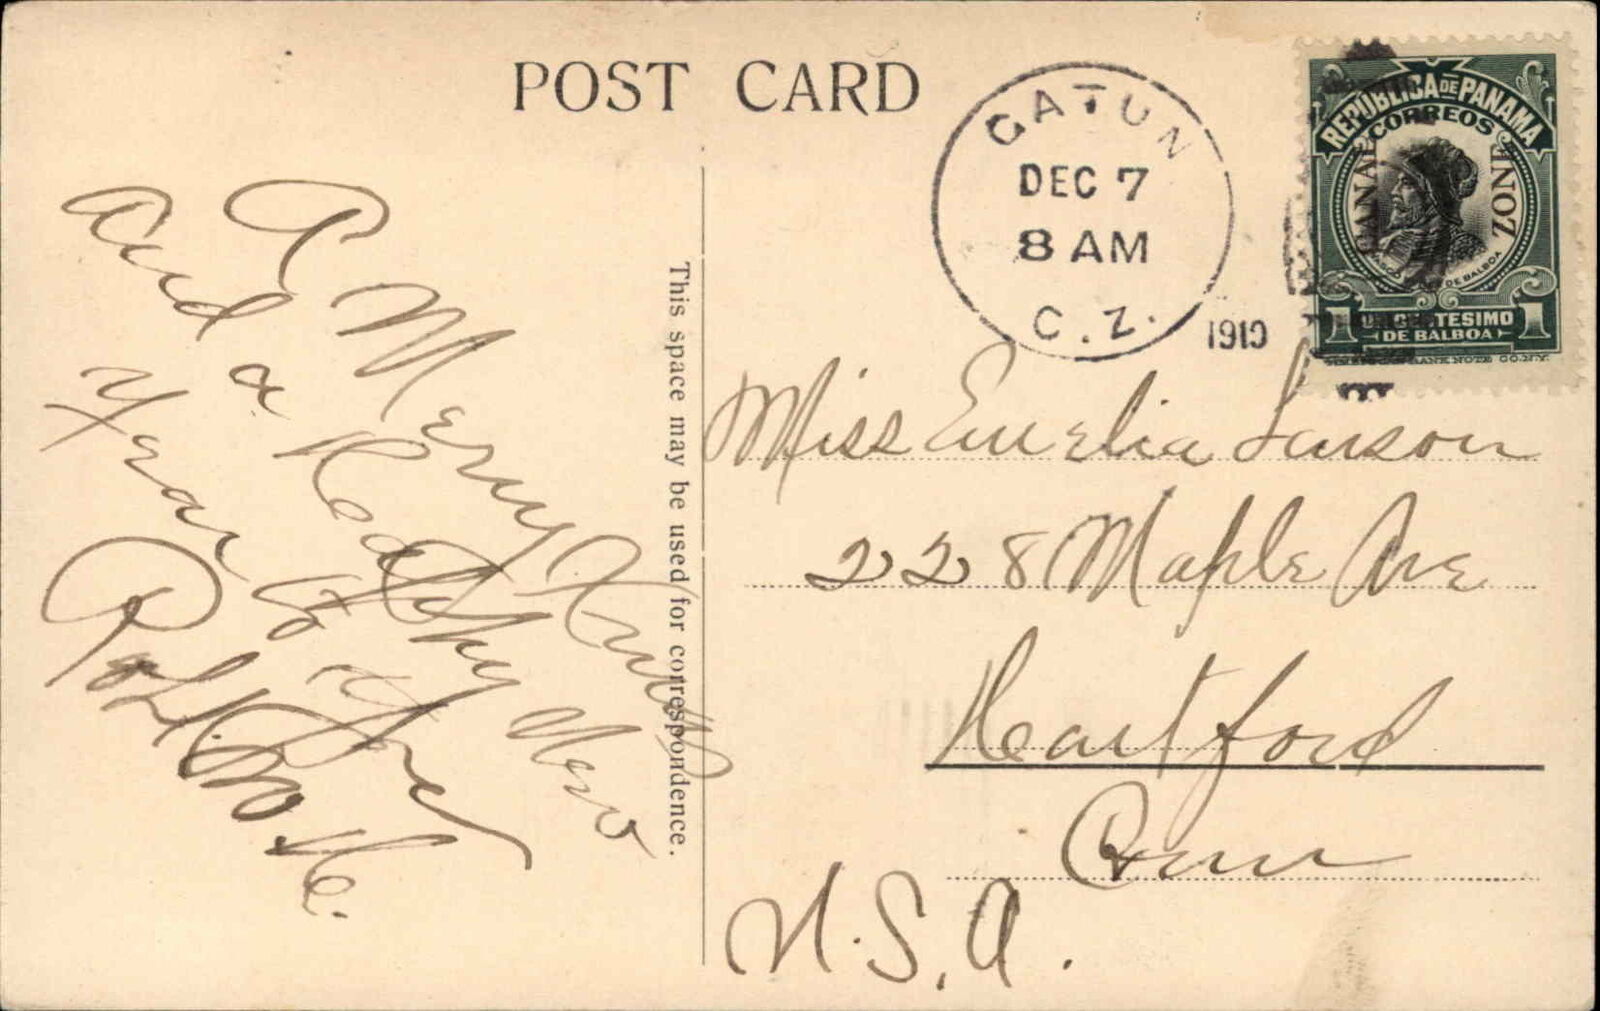 POST CARD
GATUN
DEC 7
8 AM
C. Z.
1910
REPUBLICA DE PANAMA
CORREOS
CANAL ZONE
DE BALBOA
1 UN CENTESIMO 1
DE BALBOA
BANK NOTE CO. N.Y.
This space may be used for correspondence.
A Merry Xmas
and a Happy New
Year to
Miss Emelia Larson
228 Maple Ave
Heartford
Conn
U.S.A.